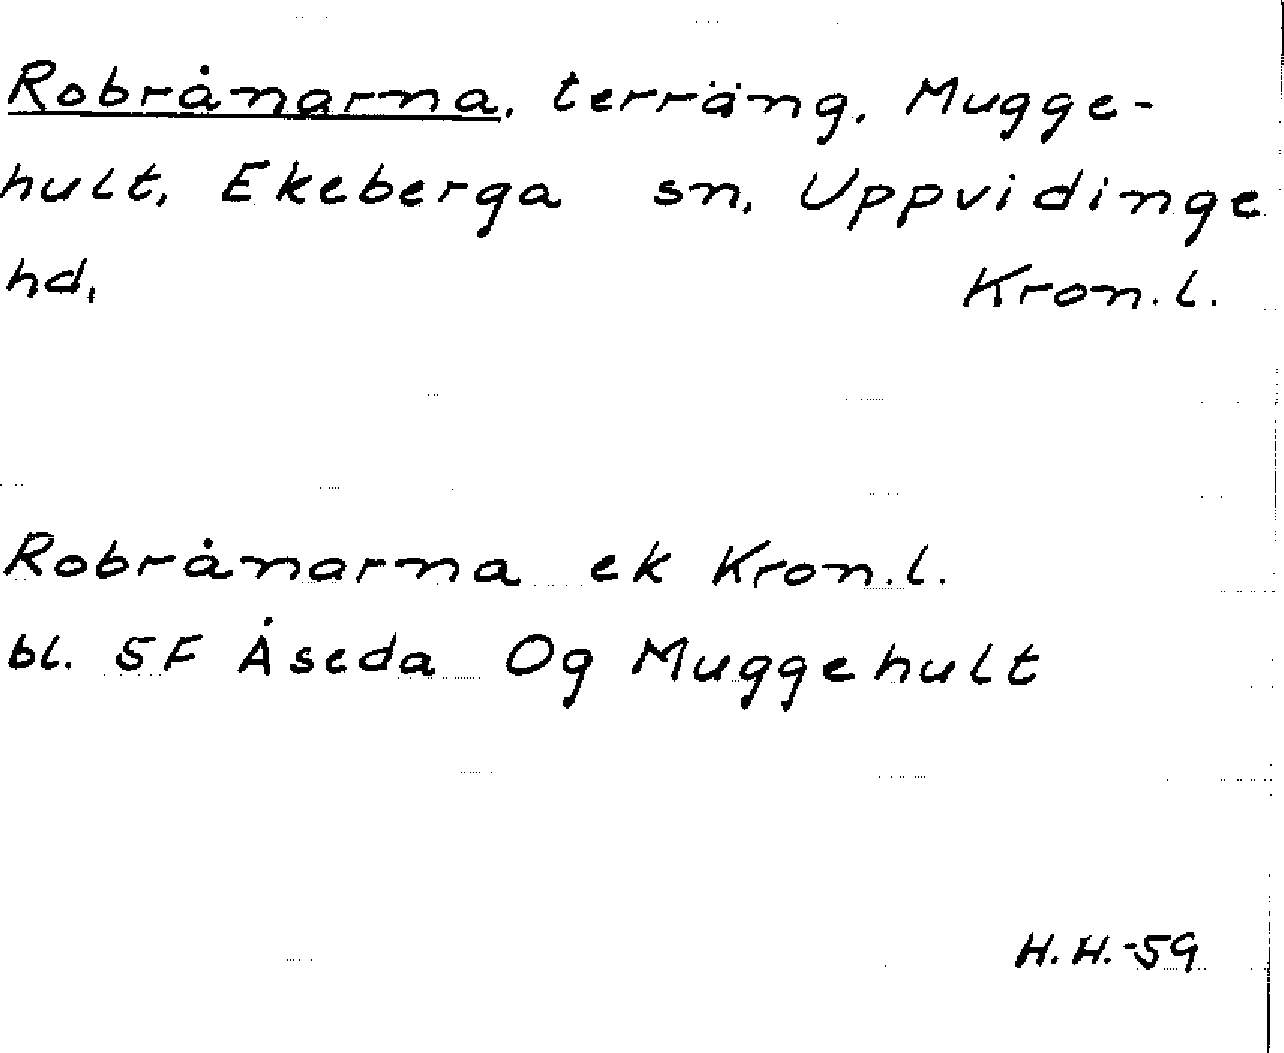 Robrånarna, terräng, Mugge-
hult, Ekeberga sn, Uppvidinge
hd, Kron.l.
Robrånarna ek Kron.l.
bl. 5F Åseda Og Muggehult
H.H.-59